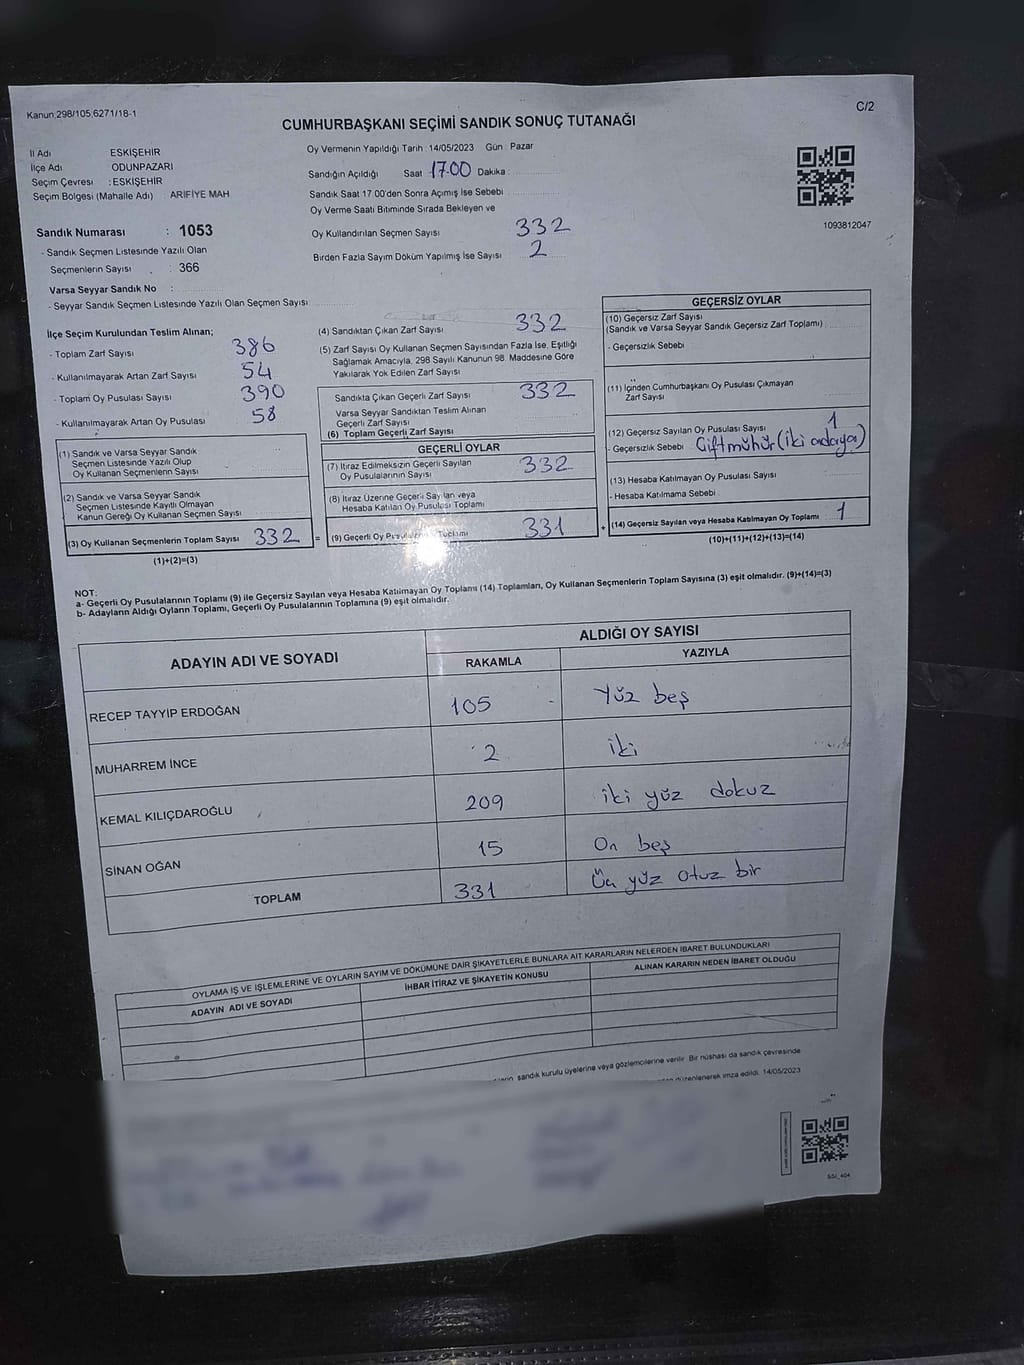 Kanun,298/105,6271/18-1
C/2
CUMHURBAŞKANI SEÇİMİ SANDIK SONUÇ TUTANAĞI
İl Adı ESKİŞEHİR
İlçe Adı ODUNPAZARI
Seçim Çevresi : ESKİŞEHİR
Seçim Bölgesi (Mahalle Adı) ARİFİYE MAH
Sandık Numarası : 1053
- Sandık Seçmen Listesinde Yazılı Olan
Seçmenlerin Sayısı : 366
Varsa Seyyar Sandık No :
- Seyyar Sandık Seçmen Listesinde Yazılı Olan Seçmen Sayısı
Oy Vermenin Yapıldığı Tarih : 14/05/2023 Gün : Pazar
Sandığın Açıldığı Saat 17.00 Dakika :
Sandık Saat 17.00'den Sonra Açımış İse Sebebi
Oy Verme Saati Bitiminde Sırada Bekleyen ve
Oy Kullandırılan Seçmen Sayısı 332
Birden Fazla Sayım Döküm Yapılmış İse Sayısı 2
1093812047
İlçe Seçim Kurulundan Teslim Alınan;
- Toplam Zarf Sayısı 386
- Kullanılmayarak Artan Zarf Sayısı 54
- Toplam Oy Pusulası Sayısı 390
- Kullanılmayarak Artan Oy Pusulası 58
(1) Sandık ve Varsa Seyyar Sandık
Seçmen Listesinde Yazılı Olup
Oy Kullanan Seçmenlerin Sayısı
(2) Sandık ve Varsa Seyyar Sandık
Seçmen Listesinde Kayıtlı Olmayan
Kanun Gereği Oy Kullanan Seçmen Sayısı
(3) Oy Kullanan Seçmenlerin Toplam Sayısı 332
(1)+(2)=(3)
=
(4) Sandıktan Çıkan Zarf Sayısı 332
(5) Zarf Sayısı Oy Kullanan Seçmen Sayısından Fazla İse, Eşitliği
Sağlamak Amacıyla, 298 Sayılı Kanunun 98. Maddesine Göre
Yakılarak Yok Edilen Zarf Sayısı
Sandıkta Çıkan Geçerli Zarf Sayısı 332
Varsa Seyyar Sandıktan Teslim Alınan
Geçerli Zarf Sayısı
(6) Toplam Geçerli Zarf Sayısı
GEÇERLİ OYLAR
(7) İtiraz Edilmeksizin Geçerli Sayılan
Oy Pusulalarının Sayısı 332
(8) İtiraz Üzerine Geçerli Sayılan veya
Hesaba Katılan Oy Pusulası Toplamı
(9) Geçerli Oy Toplamı 331
+
GEÇERSİZ OYLAR
(10) Geçersiz Zarf Sayısı
(Sandık ve Varsa Seyyar Sandık Geçersiz Zarf Toplamı)
- Geçersizlik Sebebi
(11) İçinden Cumhurbaşkanı Oy Pusulası Çıkmayan
Zarf Sayısı
(12) Geçersiz Sayılan Oy Pusulası Sayısı 1
- Geçersizlik Sebebi Çift mühür (iki adaya)
(13) Hesaba Katılmayan Oy Pusulası Sayısı
- Hesaba Katılmama Sebebi
(14) Geçersiz Sayılan veya Hesaba Katılmayan Oy Toplamı 1
(10)+(11)+(12)+(13)=(14)
NOT:
a- Geçerli Oy Pusulalarının Toplamı (9) ile Geçersiz Sayılan veya Hesaba Katılmayan Oy Toplamı (14) Toplamları, Oy Kullanan Seçmenlerin Toplam Sayısına (3) eşit olmalıdır. (9)+(14)=(3)
b- Adayların Aldığı Oyların Toplamı, Geçerli Oy Pusulalarının Toplamına (9) eşit olmalıdır.
ADAYIN ADI VE SOYADI
ALDIĞI OY SAYISI
RAKAMLA YAZIYLA
RECEP TAYYIP ERDOĞAN 105 Yüz beş
MUHARREM İNCE 2 iki
KEMAL KILIÇDAROĞLU 209 iki yüz dokuz
SİNAN OĞAN 15 On beş
TOPLAM 331 Üç yüz otuz bir
OYLAMA İŞ VE İŞLEMLERİNE VE OYLARIN SAYIM VE DÖKÜMÜNE DAİR ŞİKAYETLERLE BUNLARA AİT KARARLARIN NELERDEN İBARET BULUNDUKLARI
ADAYIN ADI VE SOYADI İHBAR İTİRAZ VE ŞİKAYETİN KONUSU ALINAN KARARIN NEDEN İBARET OLDUĞU
sandık kurulu üyelerine veya gözlemcilerine verilir. Bir nüshası da sandık çevresinde
düzenlenerek imza edildi. 14/05/2023